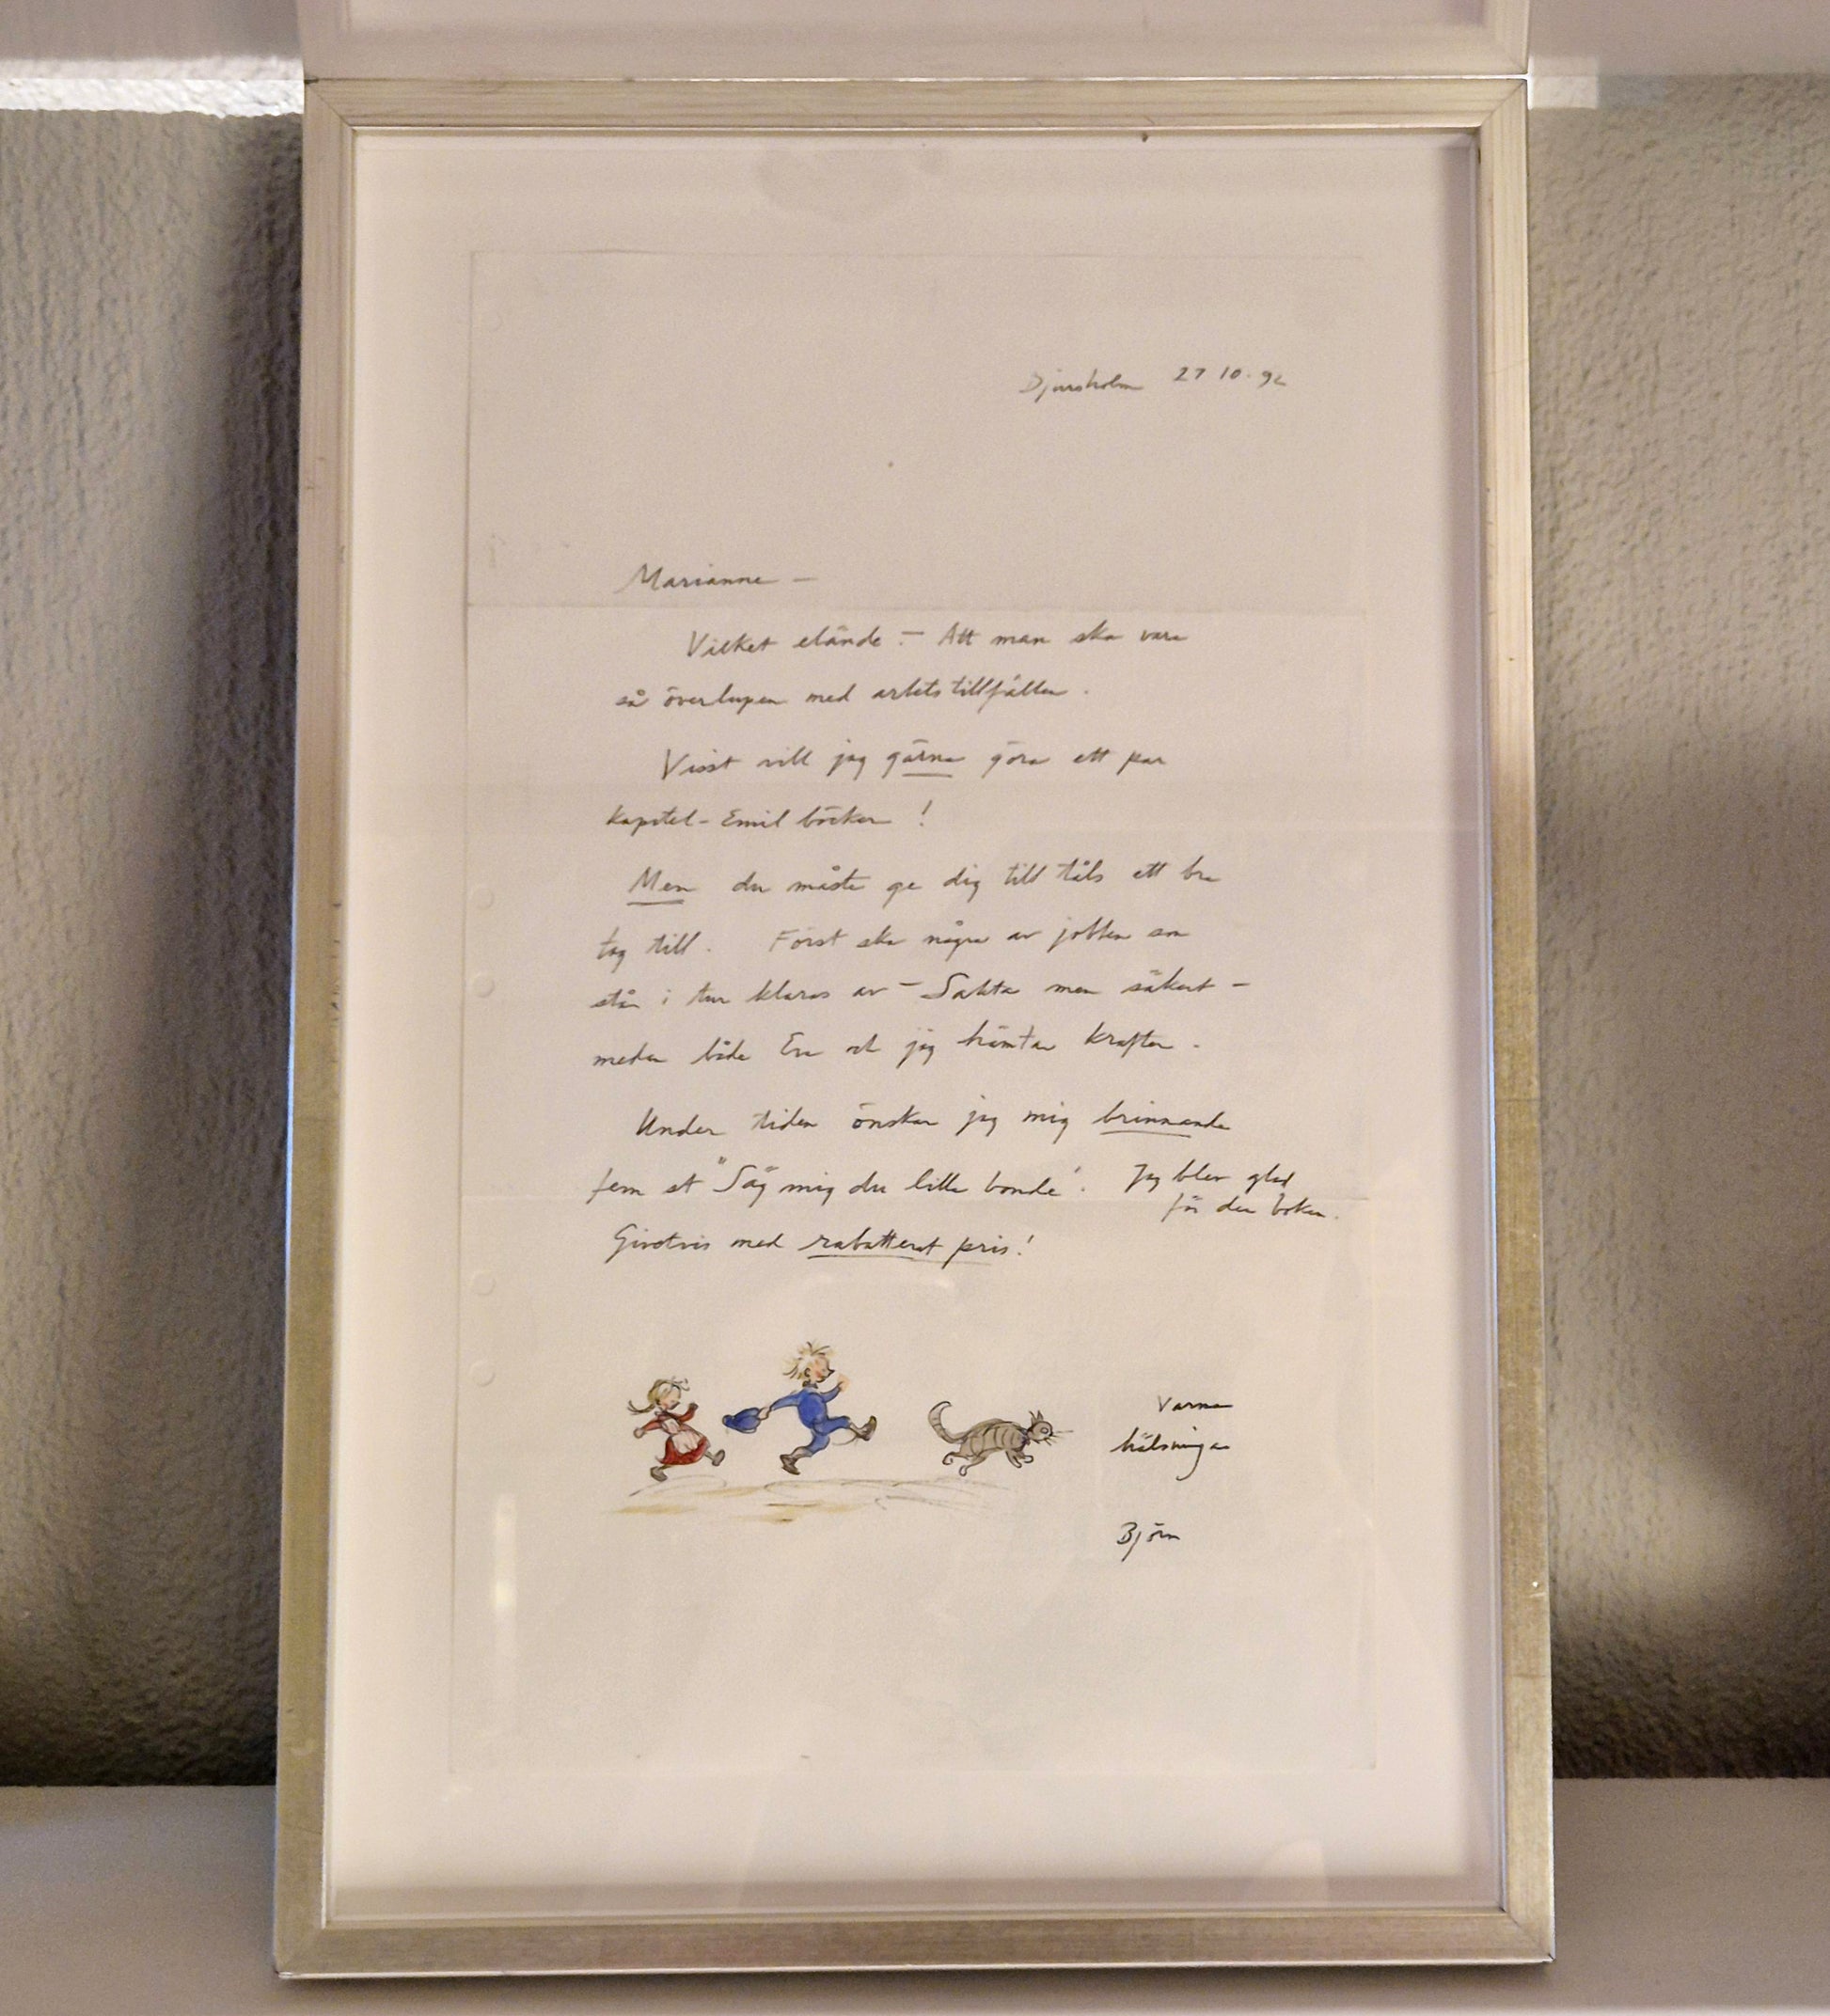 Djursholm 27 10. 92
Marianne –
Vilket elände – Att man ska vara
så överlupen med arbetstillfällen.
Visst vill jag gärna göra ett par
kapitel-Emil böcker!
Men du måste ge dig till tåls ett bra
tag till. Först ska några av jobben som
står i tur klaras av – Sakta men säkert –
medan både Eva och jag hämtar krafter.
Under tiden önskar jag mig brinnande
fem st "Säg mig du lilla bonde". Jag blev glad
för den boken.
Givetvis med rabatterat pris!
Varma
hälsningar
Björn